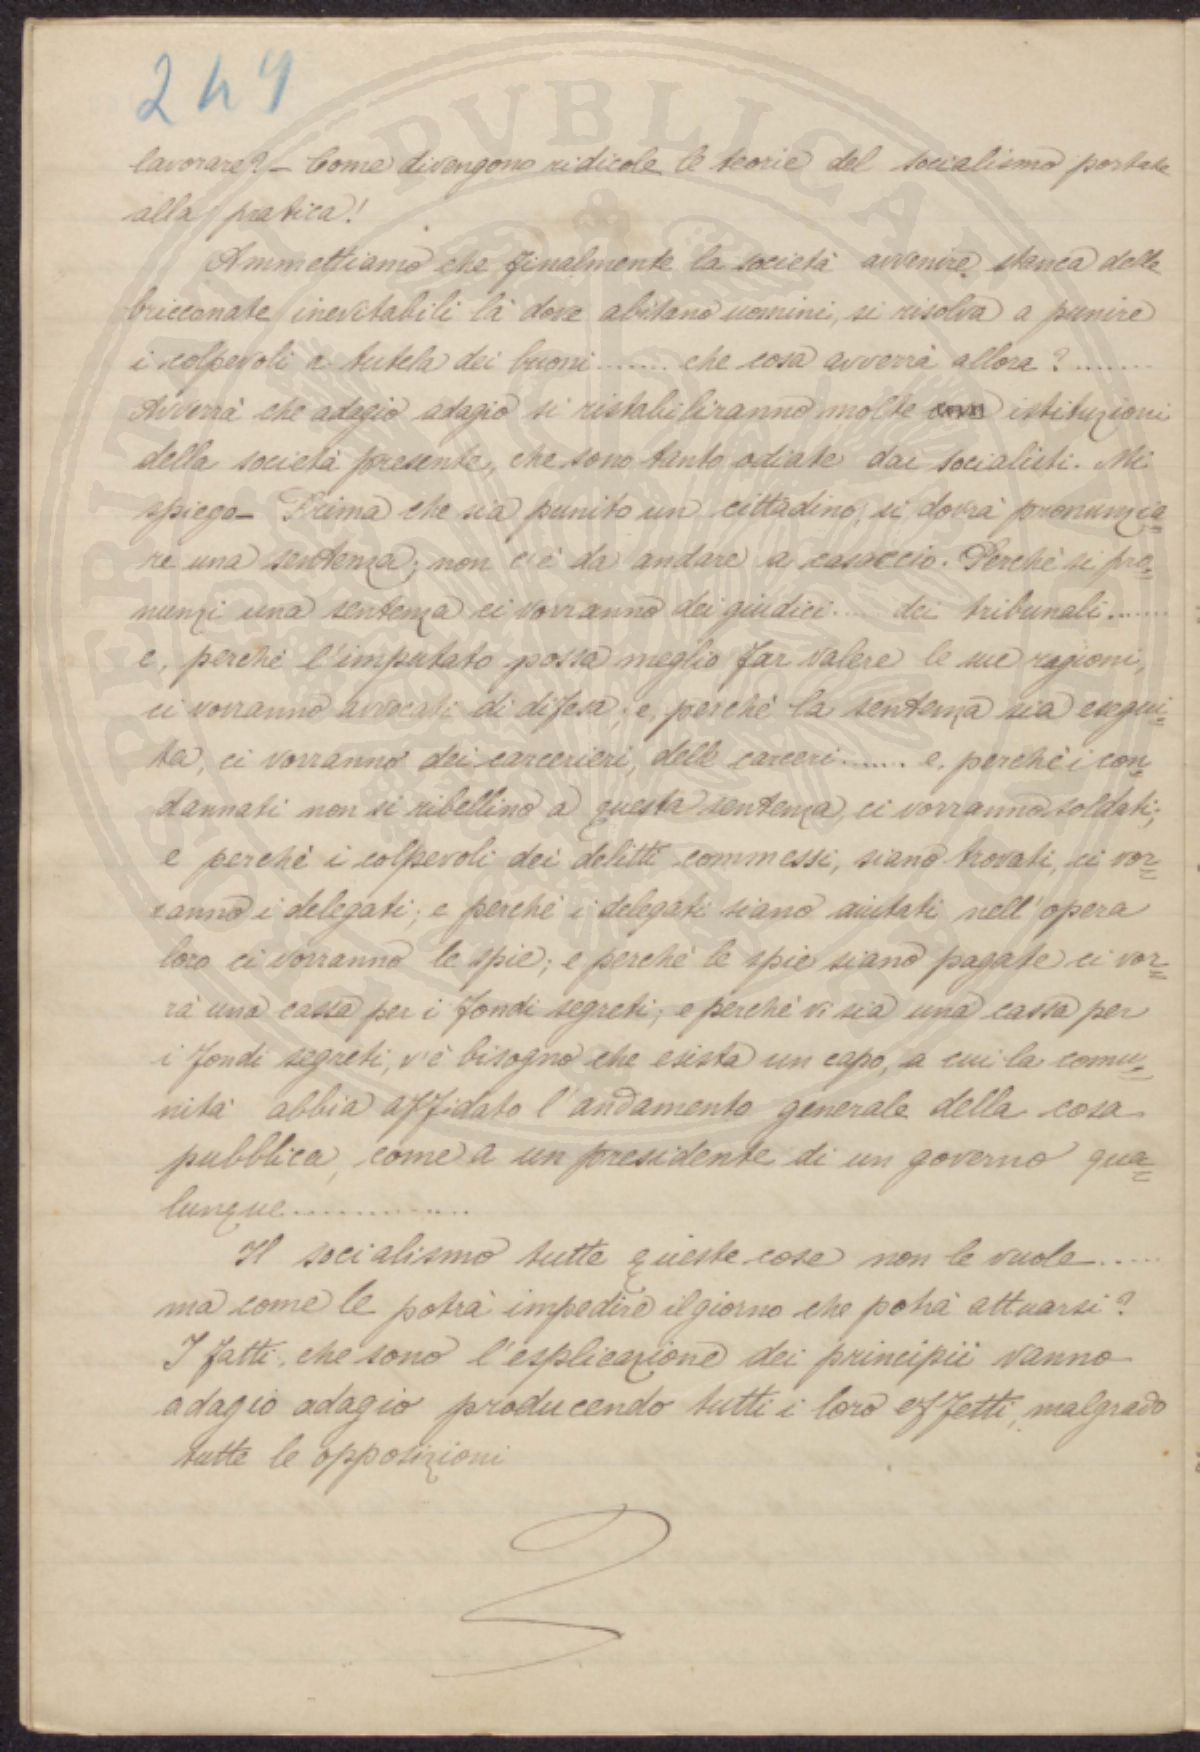 244
lavorare? – Come divengono ridicole le teorie del socialismo portate
alla pratica!
Ammettiamo che finalmente la società avvenire, stanca delle
bricconate inevitabili là dove abitano uomini, si risolva a punire
i colpevoli a tutela dei buoni ........ che cosa avverrà allora? ........
Avverrà che adagio adagio si ristabiliranno molte istituzioni
della società presente, che sono tanto odiate dai socialisti. Mi
spiego – Prima che sia punito un cittadino, si dovrà pronunzia=
re una sentenza; non c'è da andare a casaccio. Perchè si pro=
nunzi una sentenza ci vorranno dei giudici ..... dei tribunali .......
e, perchè l'imputato possa meglio far valere le sue ragioni,
ci vorranno avvocati di difesa; e, perchè la sentenza sia esegui=
ta, ci vorranno dei carcerieri, delle carceri ....... e, perchè i con=
dannati non si ribellino a questa sentenza, ci vorranno soldati;
e perchè i colpevoli dei delitti commessi, siano trovati, ci vor=
ranno i delegati; e perchè i delegati siano aiutati nell'opera
loro ci vorranno le spie; e perchè le spie siano pagate ci vor=
rà una cassa per i fondi segreti; e perchè vi sia una cassa per
i fondi segreti, v'è bisogno che esista un capo, a cui la comu=
nità abbia affidato l'andamento generale della cosa
pubblica, come a un presidente di un governo qua=
lunque .............
Il socialismo tutte queste cose non le vuole .....
ma come le potrà impedire il giorno che potrà attuarsi?
I fatti, che sono l'esplicazione dei principii vanno
adagio adagio producendo tutti i loro effetti, malgrado
tutte le opposizioni